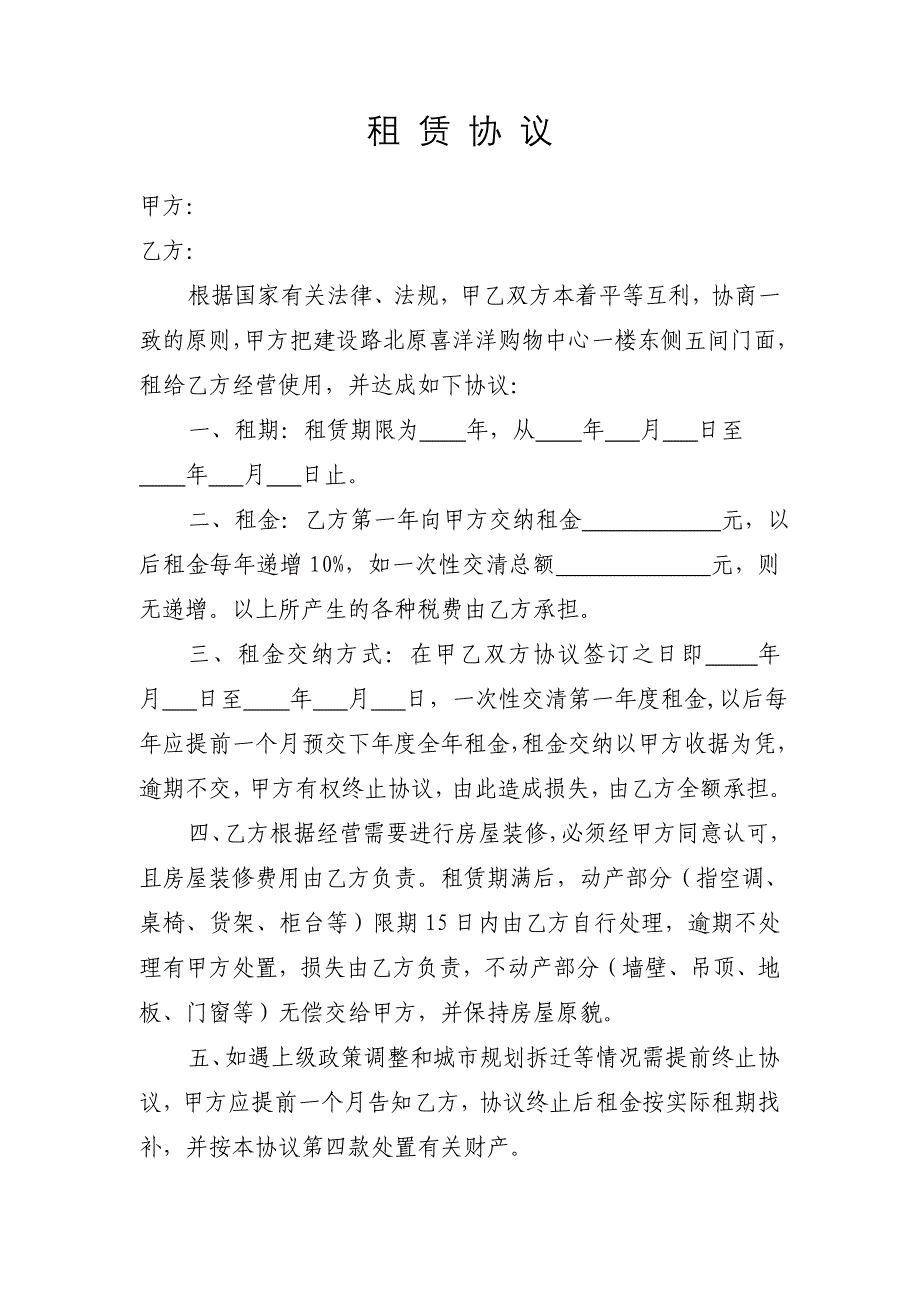 租 赁 协 议
甲方：
乙方：
根据国家有关法律、法规，甲乙双方本着平等互利，协商一
致的原则，甲方把建设路北原喜洋洋购物中心一楼东侧五间门面，
租给乙方经营使用，并达成如下协议：
一、租期：租赁期限为____年，从____年___月___日至
____年___月___日止。
二、租金：乙方第一年向甲方交纳租金____________元，以
后租金每年递增 10%，如一次性交清总额_____________元，则
无递增。以上所产生的各种税费由乙方承担。
三、租金交纳方式：在甲乙双方协议签订之日即____年
月___日至____年___月___日，一次性交清第一年度租金,以后每
年应提前一个月预交下年度全年租金，租金交纳以甲方收据为凭，
逾期不交，甲方有权终止协议，由此造成损失，由乙方全额承担。
四、乙方根据经营需要进行房屋装修，必须经甲方同意认可，
且房屋装修费用由乙方负责。租赁期满后，动产部分（指空调、
桌椅、货架、柜台等）限期 15 日内由乙方自行处理，逾期不处
理有甲方处置，损失由乙方负责，不动产部分（墙壁、吊顶、地
板、门窗等）无偿交给甲方，并保持房屋原貌。
五、如遇上级政策调整和城市规划拆迁等情况需提前终止协
议，甲方应提前一个月告知乙方，协议终止后租金按实际租期找
补，并按本协议第四款处置有关财产。